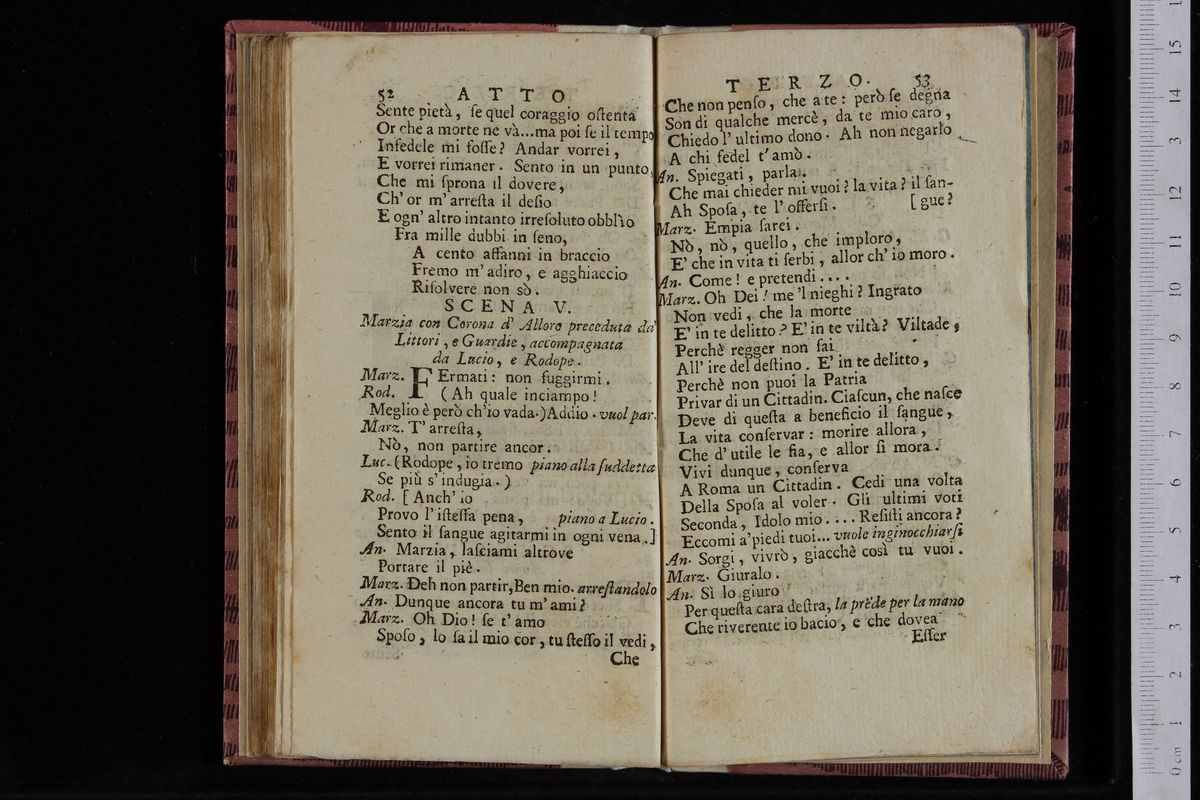 52 A T T O
Sente pietà, ſe quel coraggio oſtenta
Or che a morte ne và...ma poi ſe il tempo
Infedele mi foſſe? Andar vorrei,
E vorrei rimaner. Sento in un punto,
Che mi ſprona il dovere,
Ch' or m' arreſta il deſio
E ogn' altro intanto irreſoluto obblìo
Fra mille dubbi in ſeno,
A cento affanni in braccio
Fremo m' adiro, e agghiaccio
Riſolvere non sò.
S C E N A V.
Marzia con Corona d' Alloro preceduta da'
Littori, e Guardie, accompagnata
da Lucio, e Rodope.
Marz. FErmati: non fuggirmi.
Rod. (Ah quale inciampo!
Meglio è però ch'io vada.)Addio. vuol par.
Marz. T' arreſta,
Nò, non partire ancor.
Luc. (Rodope, io tremo piano alla ſuddetta
Se più s' indugia.)
Rod. [Anch' io
Provo l' iſteſſa pena, piano a Lucio.
Sento il ſangue agitarmi in ogni vena.]
An. Marzia, laſciami altrove
Portare il piè.
Marz. Deh non partir,Ben mio. arreſtandolo
An. Dunque ancora tu m' ami?
Marz. Oh Dio! ſe t' amo
Spoſo, lo ſa il mio cor, tu ſteſſo il vedi,
Che
T E R Z O. 53
Che non penſo, che a te: però ſe degna
Son di qualche mercè, da te mio caro,
Chiedo l' ultimo dono. Ah non negarlo
A chi fedel t' amò.
An. Spiegati, parla.
Che mai chieder mi vuoi? la vita? il ſan-
Ah Spoſa, te l' offerſi. [gue?
Marz. Empia ſarei.
Nò, nò, quello, che imploro,
E' che in vita ti ſerbi, allor ch' io moro.
An. Come! e pretendi....
Marz. Oh Dei! me 'l nieghi? Ingrato
Non vedi, che la morte
E' in te delitto? E' in te viltà? Viltade,
Perchè regger non ſai
All' ire del deſtino. E' in te delitto,
Perchè non puoi la Patria
Privar di un Cittadin. Ciaſcun, che naſce
Deve di queſta a beneficio il ſangue,
La vita conſervar: morire allora,
Che d' utile le fia, e allor ſi mora.
Vivi dunque, conſerva
A Roma un Cittadin. Cedi una volta
Della Spoſa al voler. Gli ultimi voti
Seconda, Idolo mio.... Reſiſti ancora?
Eccomi a' piedi tuoi... vuole inginocchiarſi
An. Sorgi, vivrò, giacchè così tu vuoi.
Marz. Giuralo.
An. Sì lo giuro
Per queſta cara deſtra, la prẽde per la mano
Che riverente io bacio, e che dovea
Eſſer
0 cm 1 2 3 4 5 6 7 8 9 10 11 12 13 14 15